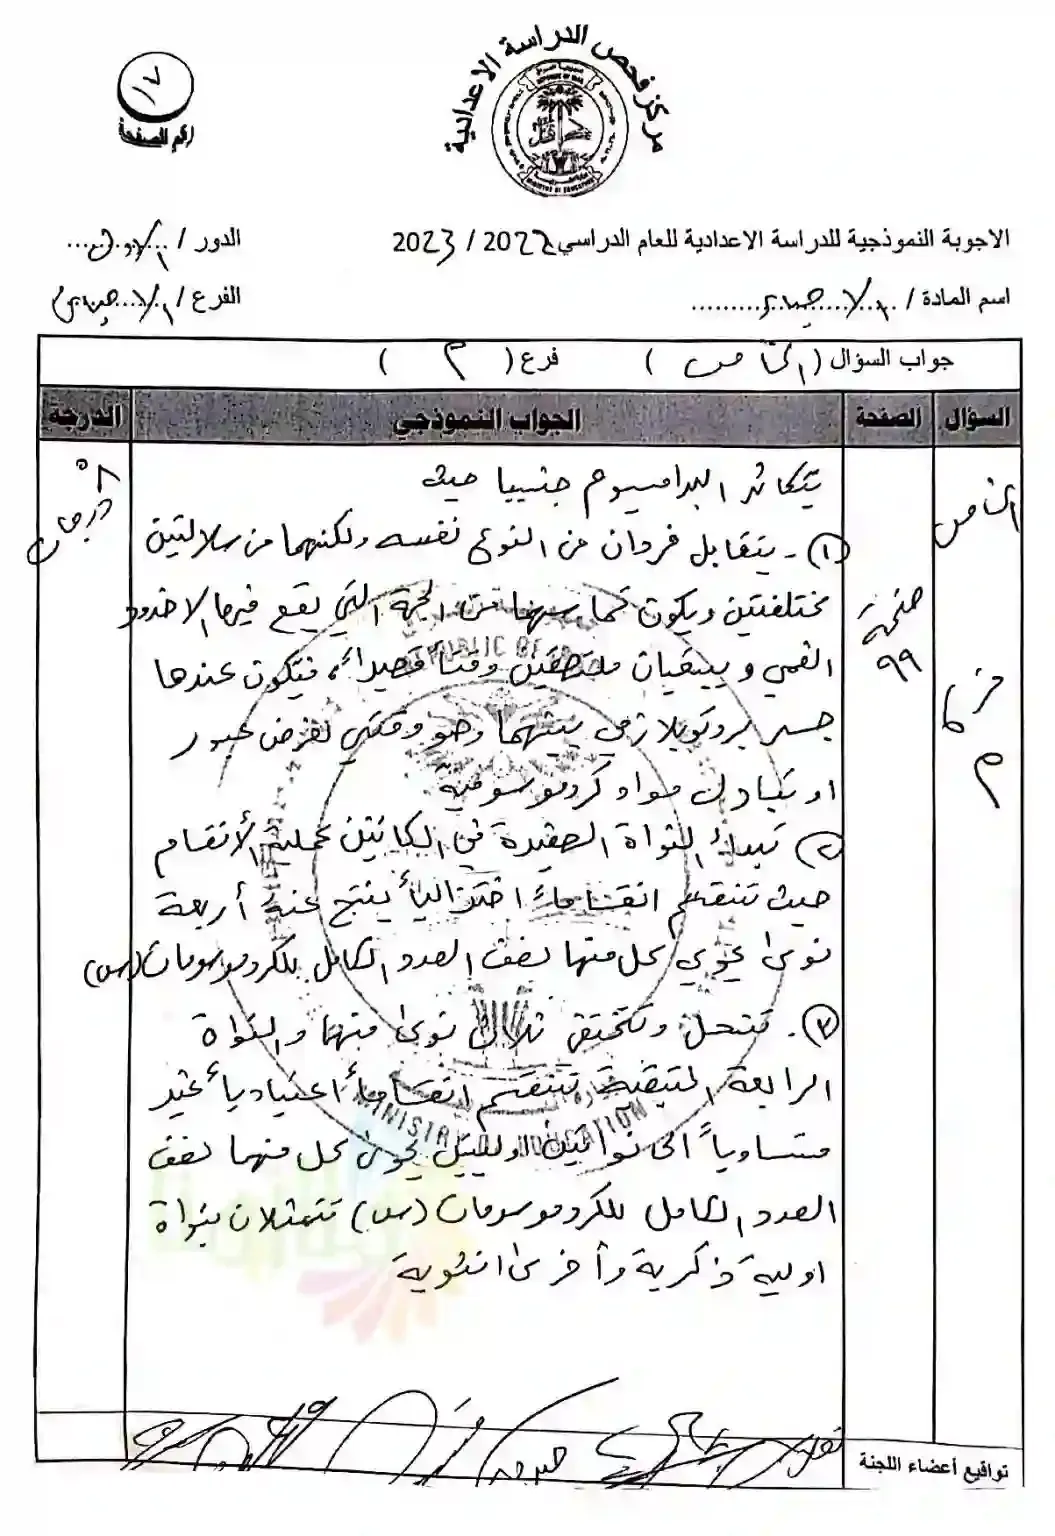 مركز فحص الدراسة الاعدادية
١٧
رقم الصفحة
الاجوبة النموذجية للدراسة الاعدادية للعام الدراسي 2022 / 2023
الدور / الاول
اسم المادة / الاحياء
الفرع / الاحيائي
جواب السؤال ( الخامس ) فرع ( م )
السؤال الصفحة الجواب النموذجي الدرجة
الخامس
فرع
م
صفحة
٩٩
درجات
يتكاثر البراميسيوم جنسيا حيث
١- يتقابل فردان من النوع نفسه ولكنهما من سلالتين
مختلفتين ويكون تماسهما من الجهة التي يقع فيها الاخدود
الفمي ويبقيان ملتصقين وقتاً قصيراً، فيتكون عندها
جسر بروتوبلازمي بينهما وهو وقتي لغرض عبور
او تبادل مواد كروموسومية
٢ تبدأ النواة الصغيرة في الكائنين عملية الأنقسام
حيث تنقسم انقساماً اختزالياً ينتج عنه أربعة
نوى يحوي كل منها نصف العدد الكامل للكروموسومات (س)
٣. تنحل وتختفي ثلاث نوى منها والنواة
الرابعة المتبقية تنقسم انقساماً اعتيادياً غير
متساوياً الى نواتين اوليتين يحوى كل منهما نصف
العدد الكامل للكروموسومات (س) تتمثلان بنواة
اولية ذكرية وأخرى انثوية
تواقيع أعضاء اللجنة